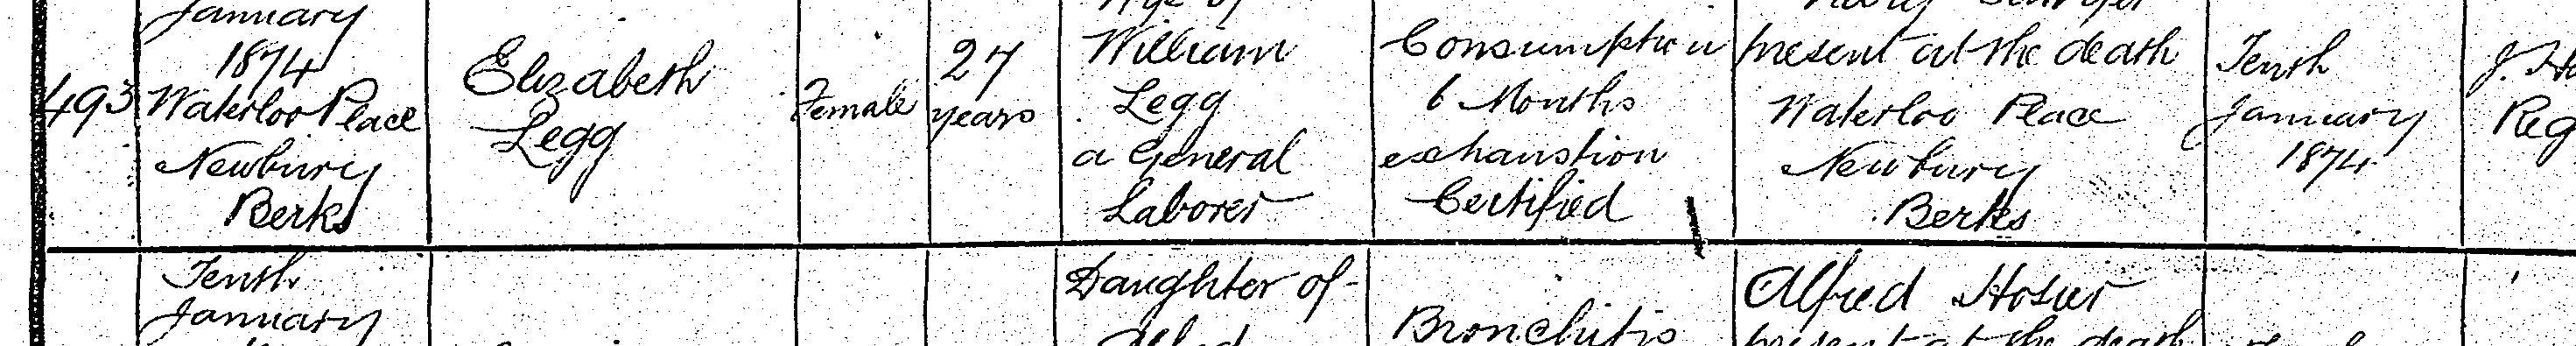 January
1874
Waterloo Place
Newbury
Berks
493
Elizabeth
Legg
Female
27
years
William
Legg
a General
Laborer
Consumption
6 Months
exhaustion
Certified
present at the death
Waterloo Place
Newbury
Berks
Tenth
January
1874
J.
Reg
Tenth
January
Daughter of
Bronchitis
Alfred Hosier
present at the death